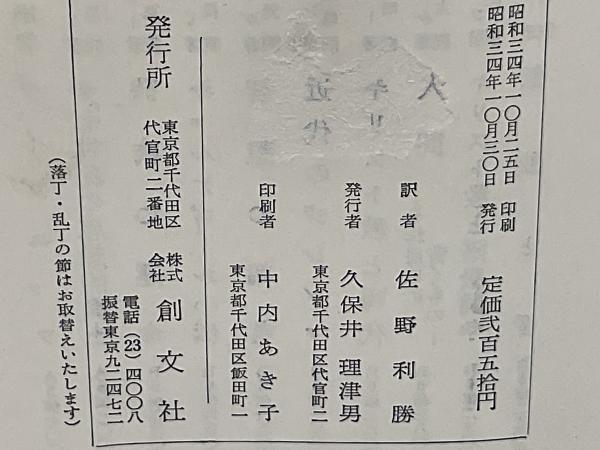 昭和三四年一〇月二五日 印刷
昭和三四年一〇月三〇日 発行
定価弐百五拾円
訳者 佐野利勝
発行者 久保井理津男
東京都千代田区代官町二
印刷者 中内あき子
東京都千代田区飯田町一
発行所
東京都千代田区
代官町二番地
株式
会社
創文社
電話(23)四〇〇八
振替東京九二四七二
(落丁・乱丁の節はお取替えいたします)